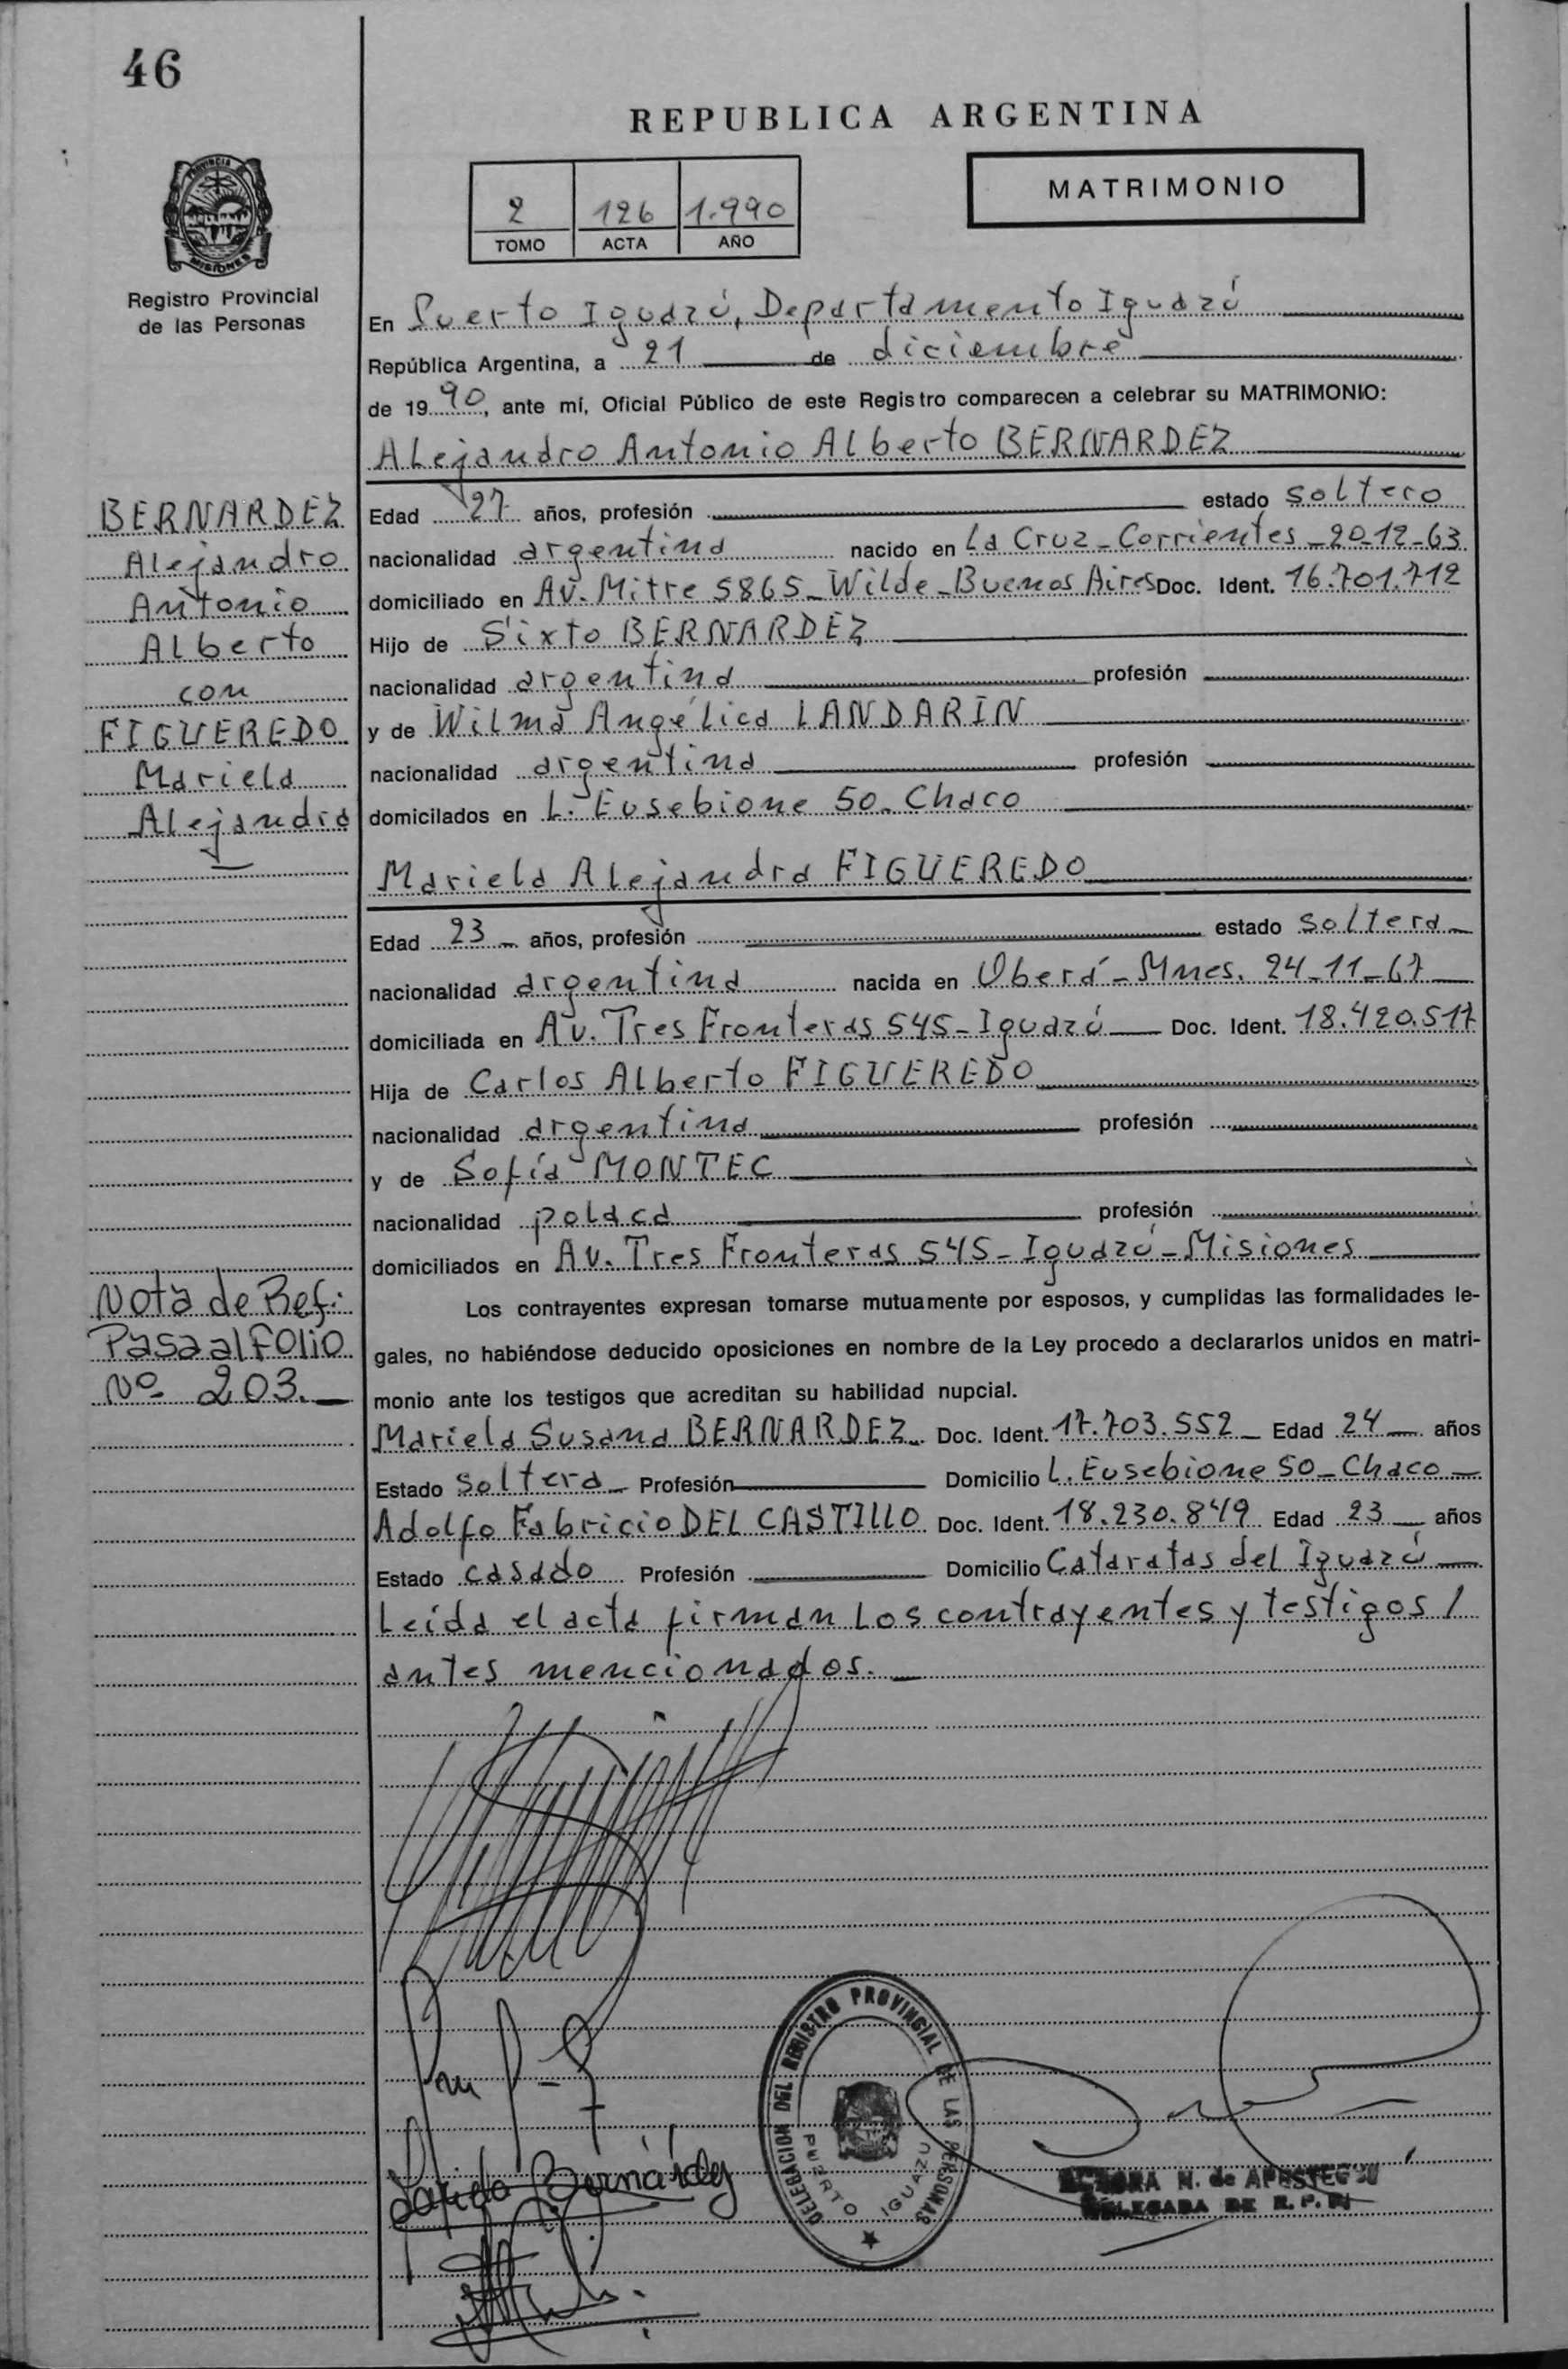 46
REPUBLICA ARGENTINA
2 126 1.990
TOMO ACTA AÑO
MATRIMONIO
PROVINCIA
MISIONES
Registro Provincial
de las Personas
En Puerto Iguazú, Departamento Iguazú
República Argentina, a 21 de diciembre
de 1990, ante mí, Oficial Público de este Registro comparecen a celebrar su MATRIMONIO:
Alejandro Antonio Alberto BERNARDEZ
BERNARDEZ
Alejandro
Antonio
Alberto
con
FIGUEREDO
Mariela
Alejandra
Edad 27 años, profesión estado soltero
nacionalidad argentina nacido en La Cruz-Corrientes-20-12-63
domiciliado en Av. Mitre 5865-Wilde-Buenos Aires Doc. Ident. 16.701.712
Hijo de Sixto BERNARDEZ
nacionalidad argentina profesión
y de Wilma Angélica LANDARIN
nacionalidad argentina profesión
domicilados en L. Eusebione 50-Chaco
Mariela Alejandra FIGUEREDO
Edad 23 - años, profesión estado soltera
nacionalidad argentina nacida en Oberá-Mnes. 24-11-67
domiciliada en Av. Tres Fronteras 545-Iguazú Doc. Ident. 18.420.517
Hija de Carlos Alberto FIGUEREDO
nacionalidad argentina profesión
y de Sofía MONTEC
nacionalidad polaca profesión
domiciliados en Av. Tres Fronteras 545-Iguazú-Misiones
Nota de Ref:
Pasa al folio
Nº 203.-
Los contrayentes expresan tomarse mutuamente por esposos, y cumplidas las formalidades le-
gales, no habiéndose deducido oposiciones en nombre de la Ley procedo a declararlos unidos en matri-
monio ante los testigos que acreditan su habilidad nupcial.
Mariela Susana BERNARDEZ Doc. Ident. 17.703.552 Edad 24 años
Estado soltera Profesión Domicilio L. Eusebione 50-Chaco
Adolfo Fabricio DEL CASTILLO Doc. Ident. 18.230.849 Edad 23 años
Estado casado Profesión Domicilio Cataratas del Iguazú
Leída el acta firman los contrayentes y testigos /
antes mencionados.-
DELEGACION DEL REGISTRO PROVINCIAL DE LAS PERSONAS
PUERTO IGUAZU
Bernárdez
N. de
DELEGADA DE R. P.